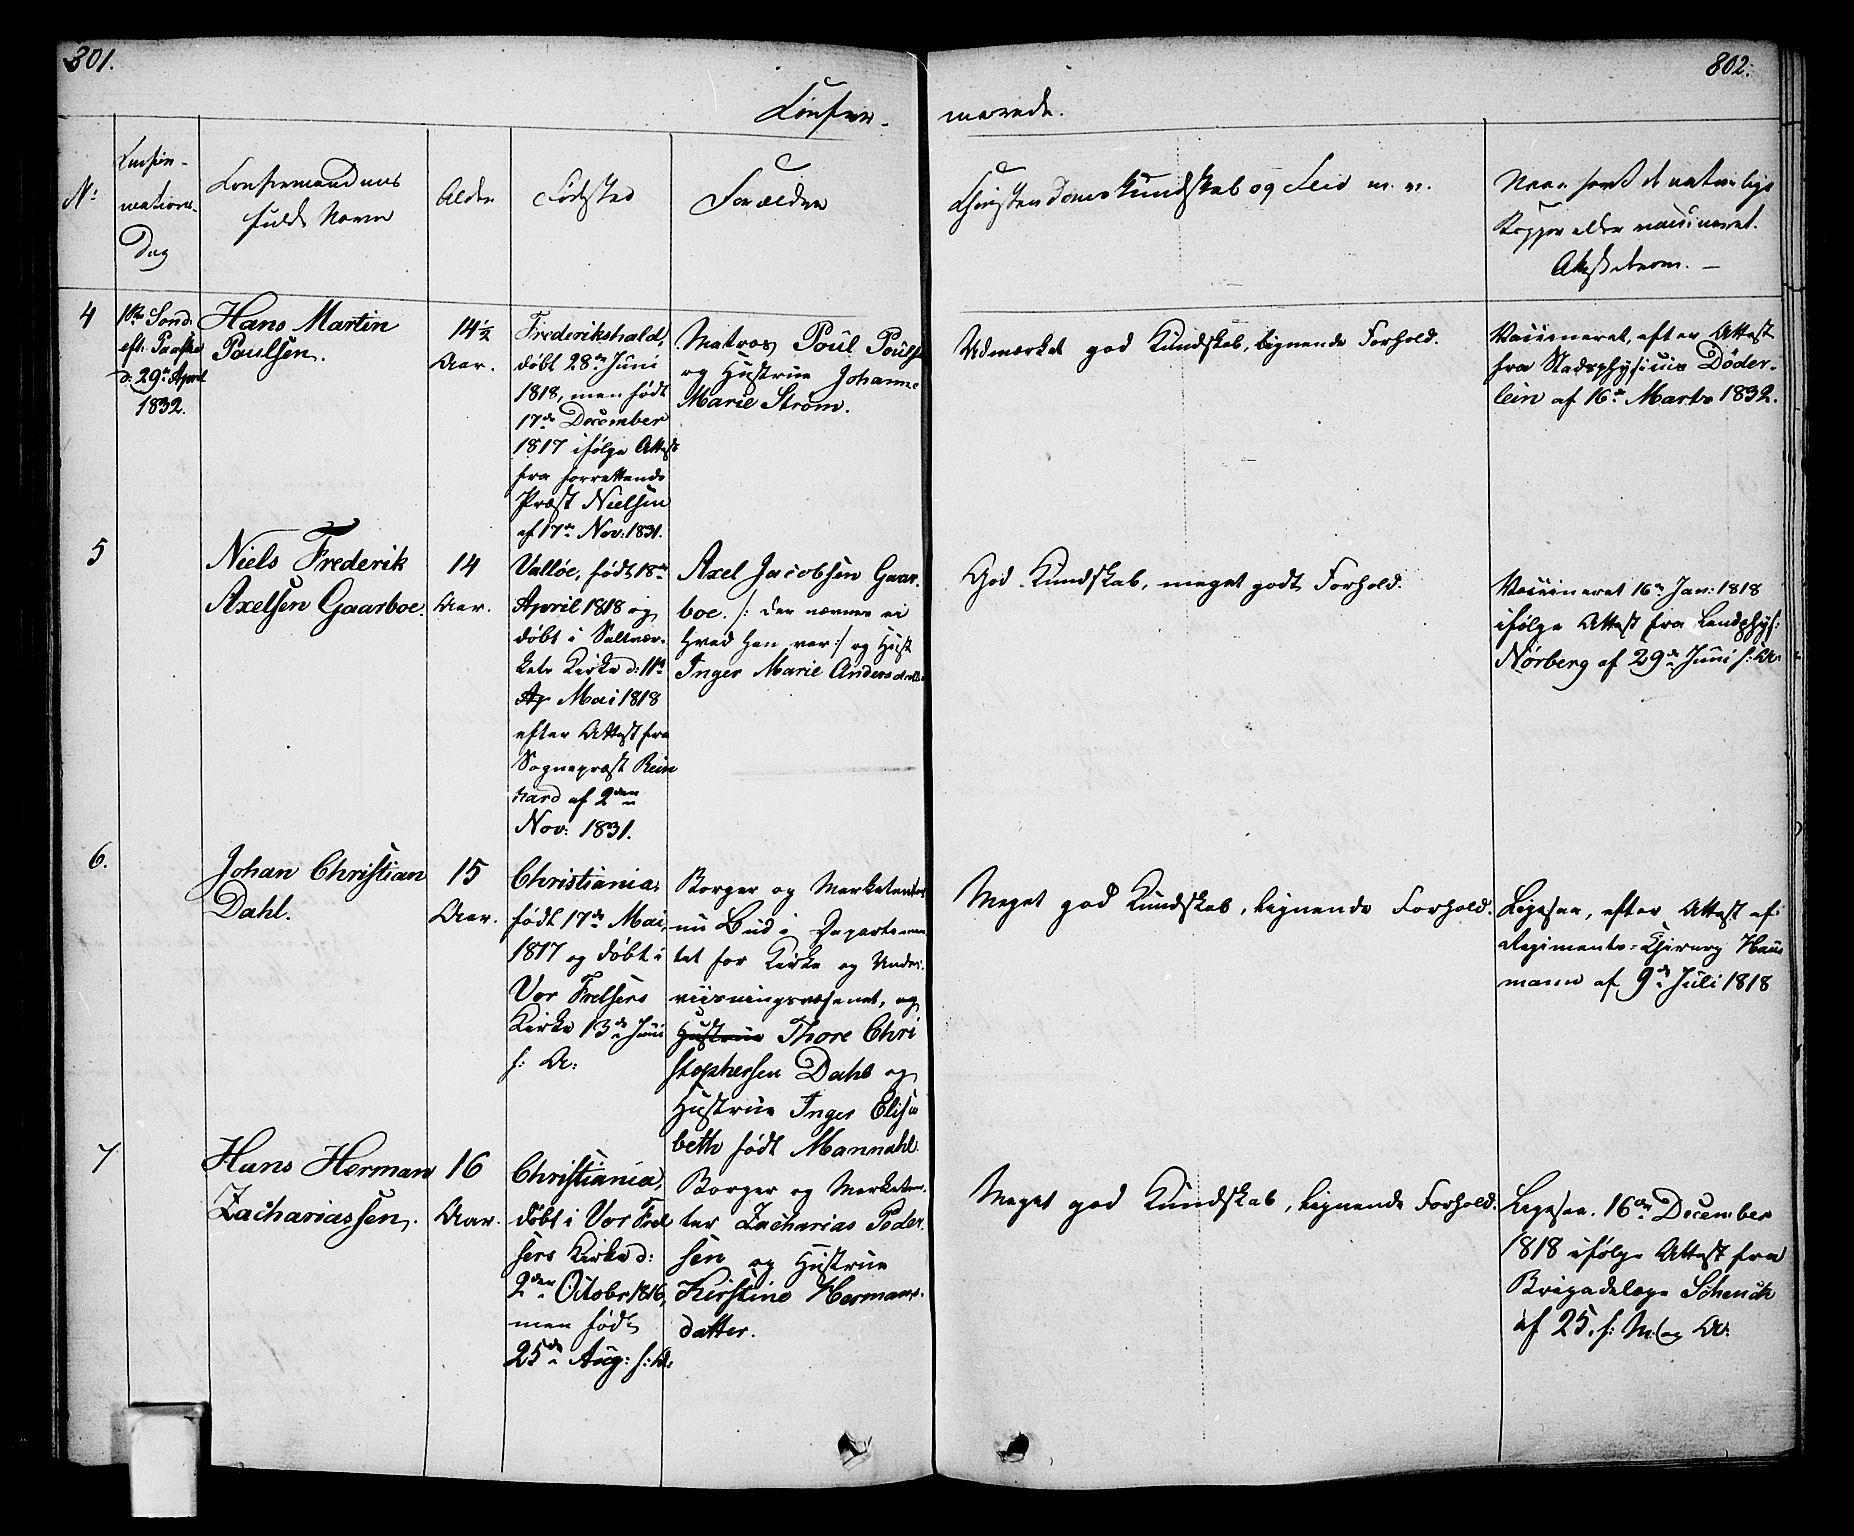 801.
802.
Confir-
merede.
No
Confir-
mations-
Dag
Confirmandens
fulde Navn
Alder
Fødested
Forældre
Christendomskundskab og Flid m. v.
Naar havt de naturlige
Kopper eller vaccineret.
Attest derom. —
4
1ste Sønd:
eft: Paaske
d: 29de April
1832.
Hans Martin
Paulsen.
14½
Aar.
Frederikshald,
døbt 28de Juni
1818, men født
17de December
1817 ifølge Attest
fra forrettende
Præst Nielsen
af 17de Nov: 1831.
Matros Poul Pouls
og Hustrue Johanne
Marie Strøm.
Udmærket god Kundskab, lignende Forhold.
Vaccineret, efter Attest
fra Stadsphysicus Döder-
lein af 16de Marts 1832.
5
Niels Frederik
Axelsen Gaarboe.
14
Aar.
Valløe, født 18de
April 1818 og
døbt i Saltvær-
kets Kirke d: 11te
Ap Mai 1818
efter Attest fra
Sognepræst Rein
hard af 2den
Nov: 1831.
Axel Jacobsen Gaar-
boe. /: der nævnes ei
hvad han var :/ og Hust
Inger Marie Andersdatter
God Kundskab, meget godt Forhold.
Vaccineret 16de Jan: 1818
ifølge Attest fra Landphys:
Nørberg af 29de Juni s: A:
6.
Johan Christian
Dahl.
15
Aar.
Christiania,
født 17de Mai,
1817 og døbt i
Vor Frelsers
Kirke 13de Juni
s: A:
Borger og Marketenter
nu Bud i Departemen
tet for Kirke og Under-
viisningsvæsenet, og
Hustrue Thore Chri
stophersen Dahl og
Hustrue Inger Elisa
beth født Manndahl.
Meget god Kundskab, lignende Forhold.
Ligesaa, efter Attest af
Regiments-Chirurg Haus
mann af 9de Juli 1818
7
Hans Herman
Zachariassen.
16
Aar.
Christiania,
døbt i Vor Frel
sers Kirke d:
2den Octobr 1816,
men født
25de Aug: s: A:
Borger og Marketen-
ter Zacharias Peder-
sen og Hustrue
Kirstine Hermans-
datter.
Meget god Kundskab, lignende Forhold.
Ligesaa. 16de December
1818 ifølge Attest fra
Brigadelæge Schenck
af 25. s: M: og A: